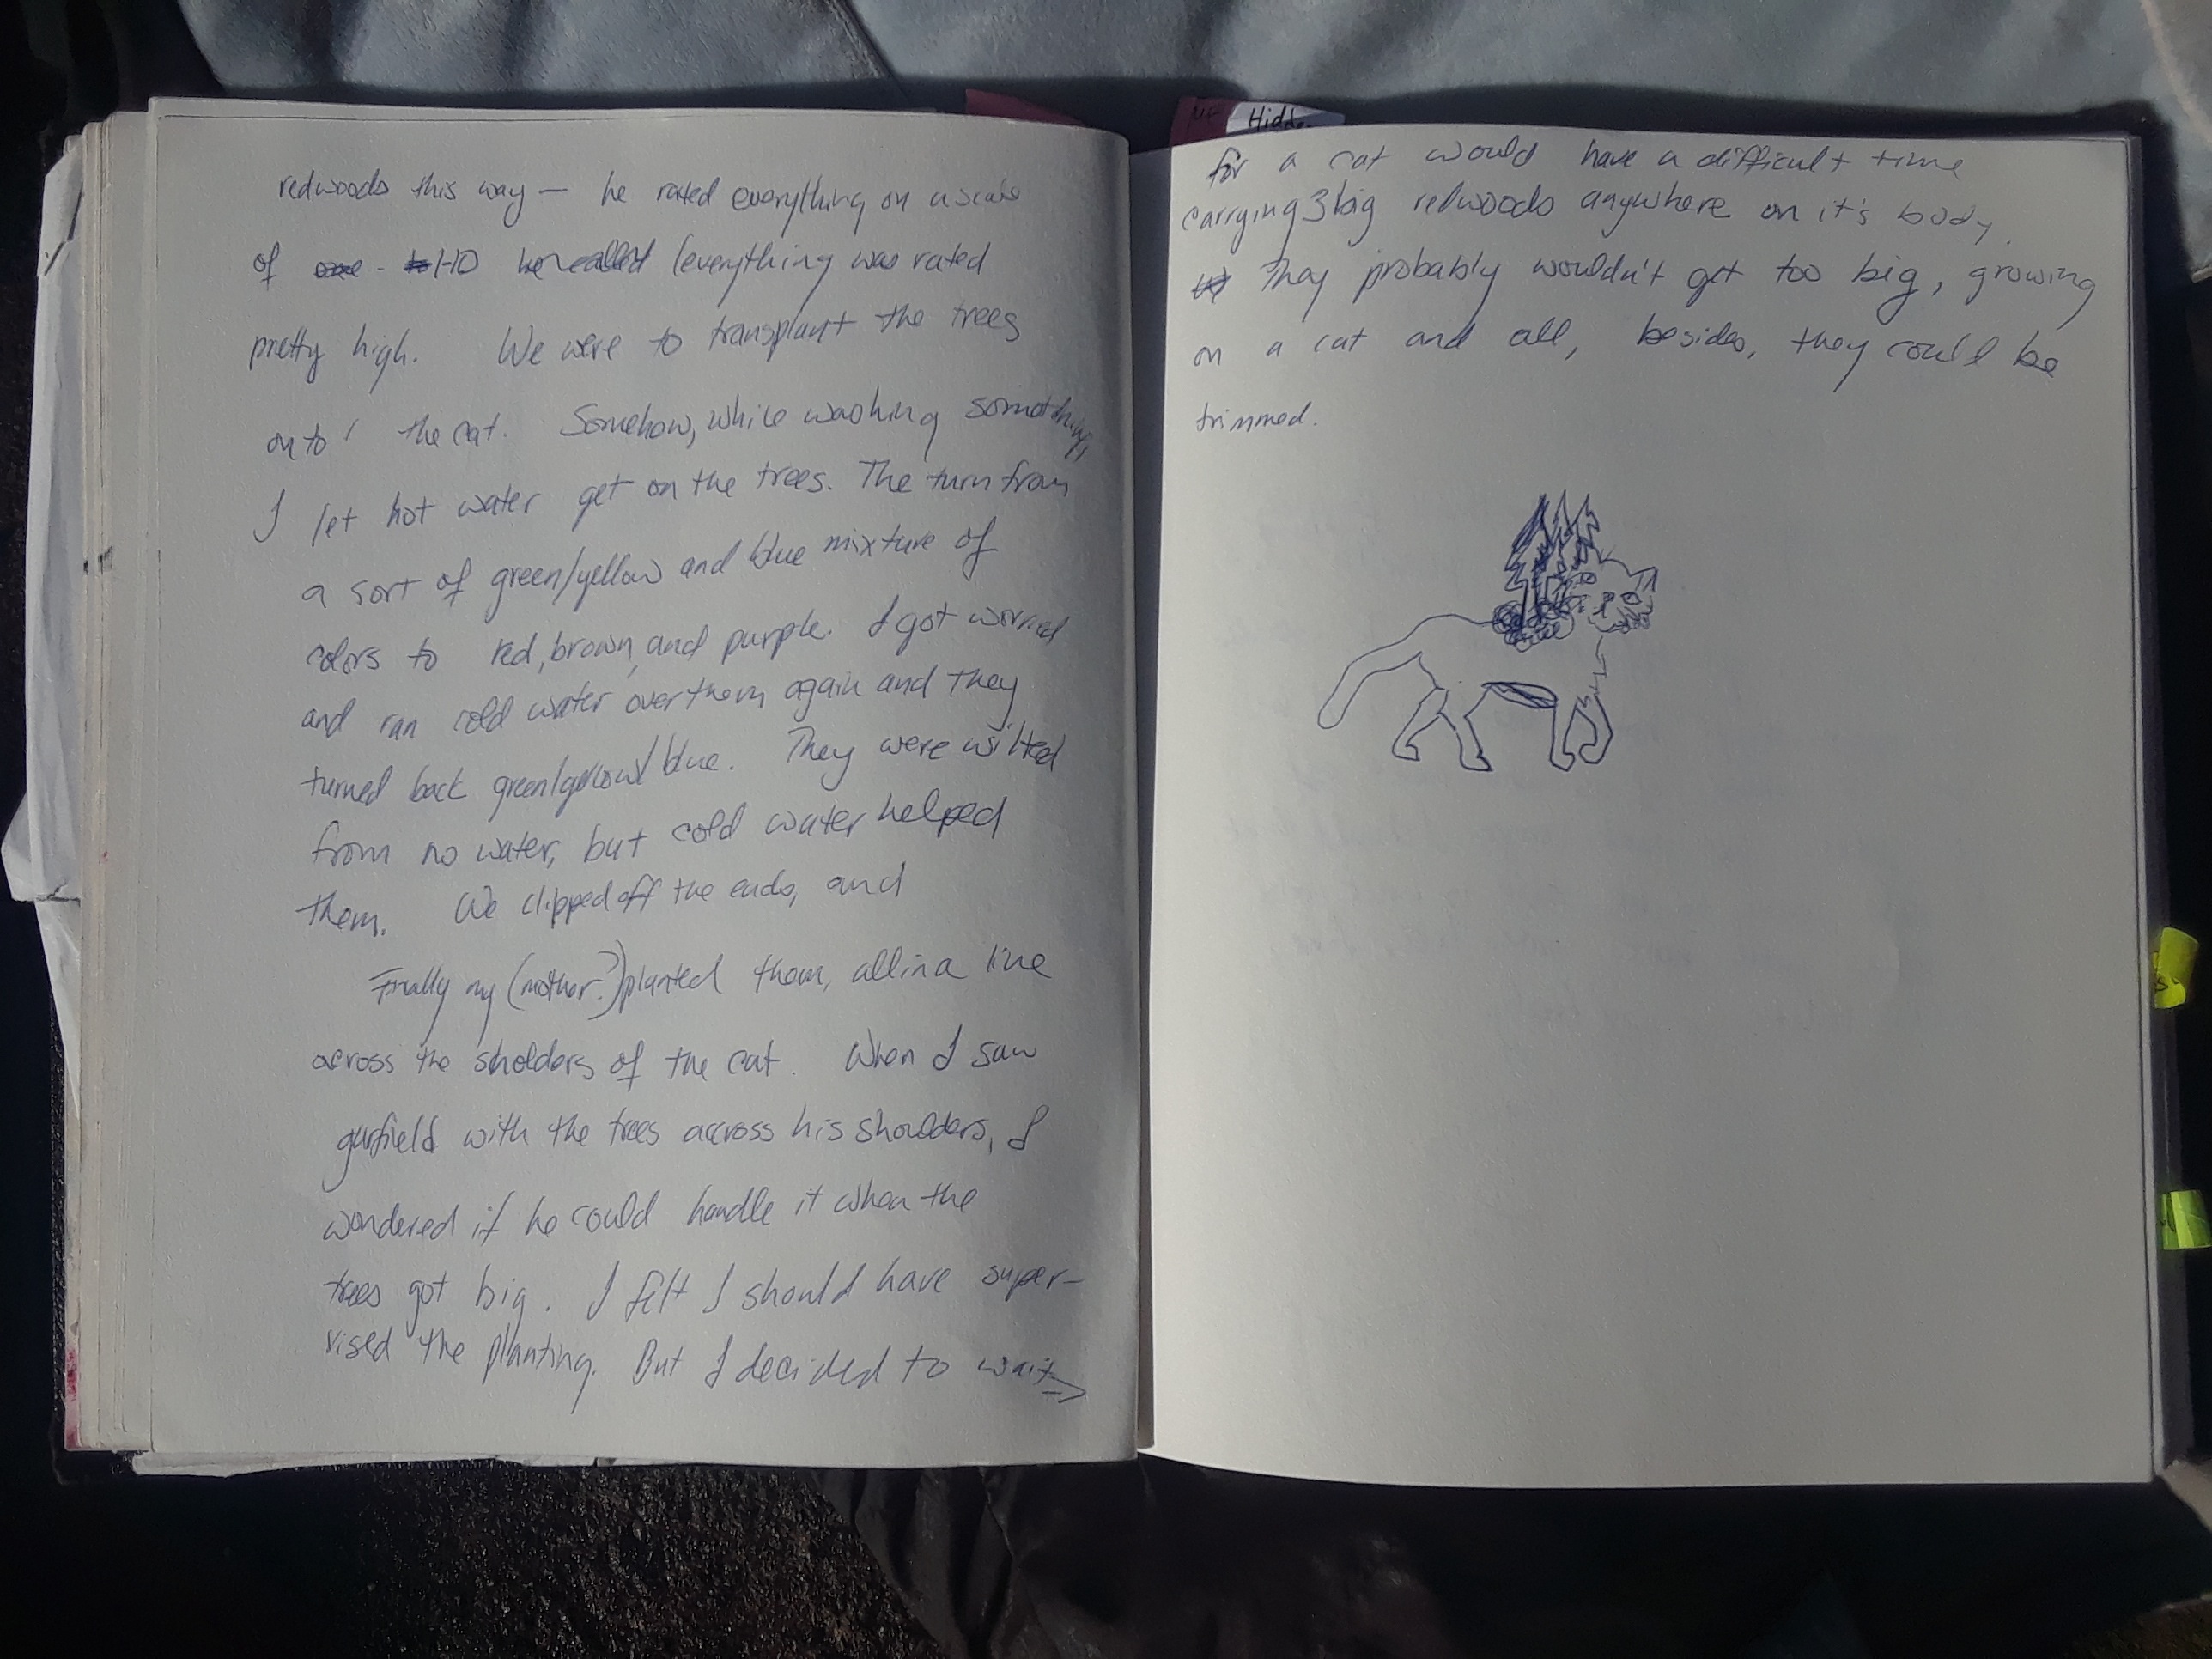 redwoods this way — he rated everything on a scale
of one - 1-10 he called (everything was rated
pretty high. We were to transplant the trees
onto the cat. Somehow, while washing something,
I let hot water get on the trees. The turn from
a sort of green/yellow and blue mixture of
colors to red, brown, and purple. I got worried
and ran cold water over them again and they
turned back green/yellow/blue. They were wilted
from no water, but cold water helped
them. We clipped off the ends, and
Finally my (mother?) planted them, all in a line
across the sholders of the cat. When I saw
garfield with the trees across his shoulders, I
wondered if he could handle it when the
trees got big. I felt I should have super-
vised the planting. But I decided to wait →
Hidde
for a cat would have a difficult time
carrying 3 big redwoods anywhere on it's body.
They probably wouldn't get too big, growing
on a cat and all, besides, they could be
trimmed.